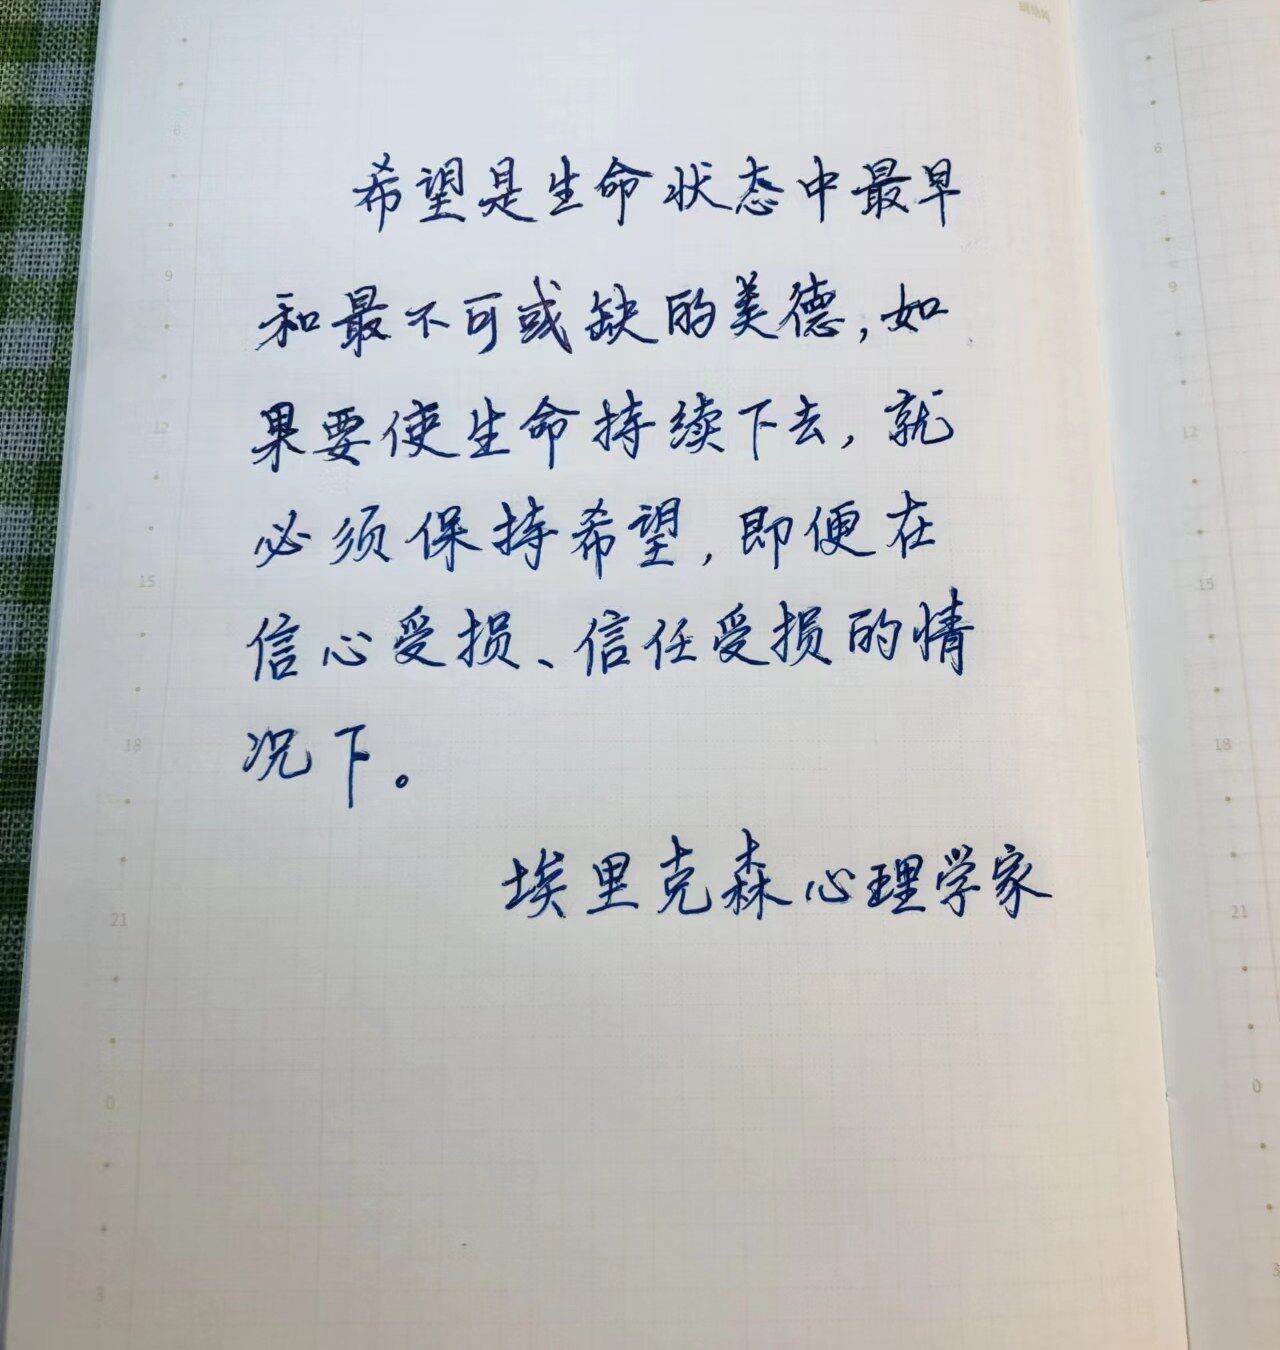 希望是生命状态中最早
和最不可或缺的美德,如
果要使生命持续下去,就
必须保持希望,即便在
信心受损、信任受损的情
况下。
埃里克森心理学家
6
9
12
15
18
21
0
3
6
9
12
15
18
21
0
3